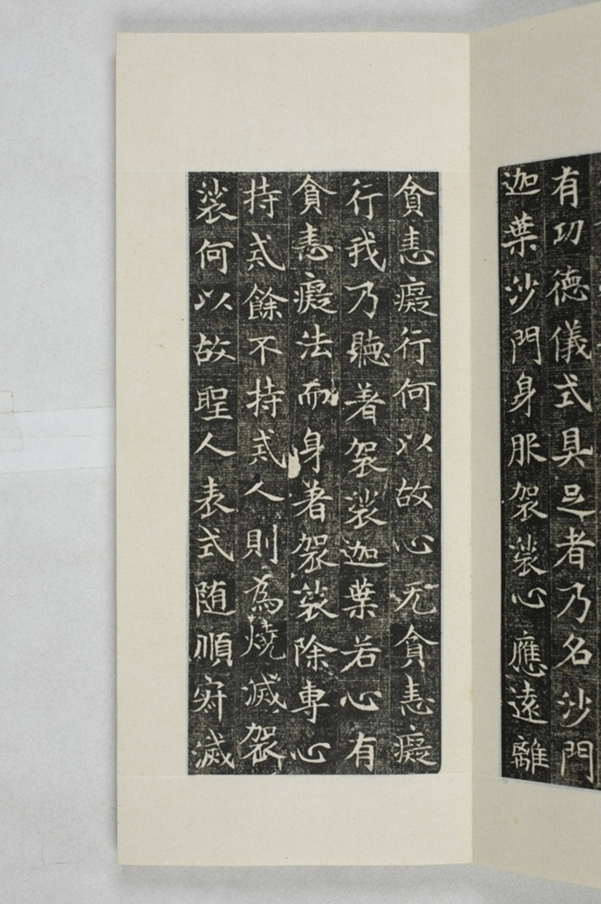 有功德儀式具足者乃名沙門
迦葉沙門身服袈裟心應遠離
貪恚癡行何以故心无貪恚癡
行我乃聽著袈裟迦葉若心有
貪恚癡法而身著袈裟除專心
持戒餘不持戒人則為燒滅袈
裟何以故聖人表式随順寂滅